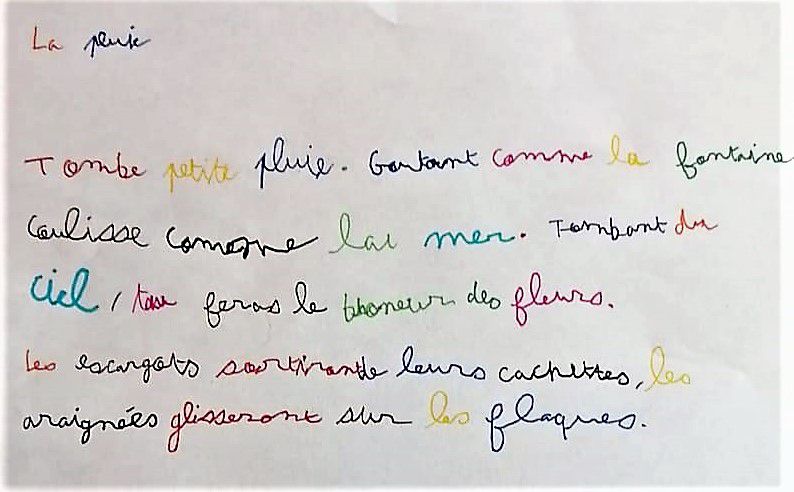 La pluie
Tombe petite pluie. Goutant comme la fontaine
Coulisse comme la mer. Tombant du
ciel, tu feras le bhoneur des fleurs.
Les escargots sortiront de leurs cachettes, les
araignées glisseront sur les flaques.